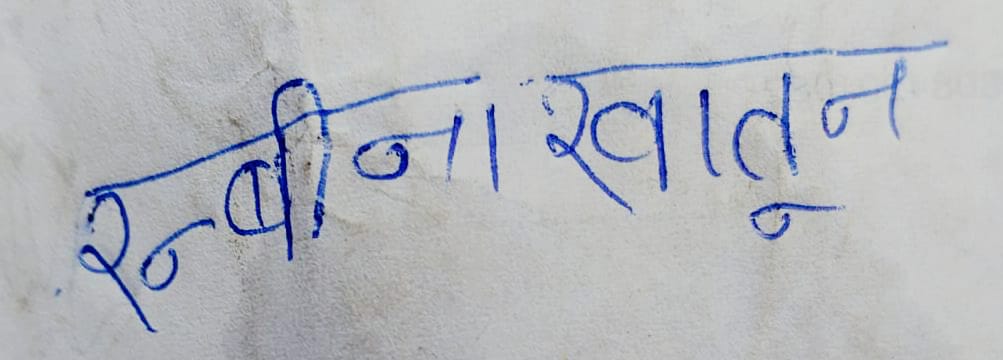 रुबीना खातून